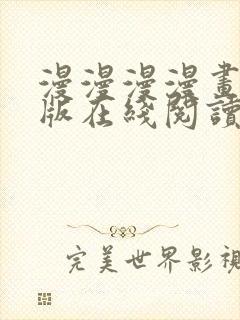 漫漫漫漫畫
版在綫閱讀
完美世界影視